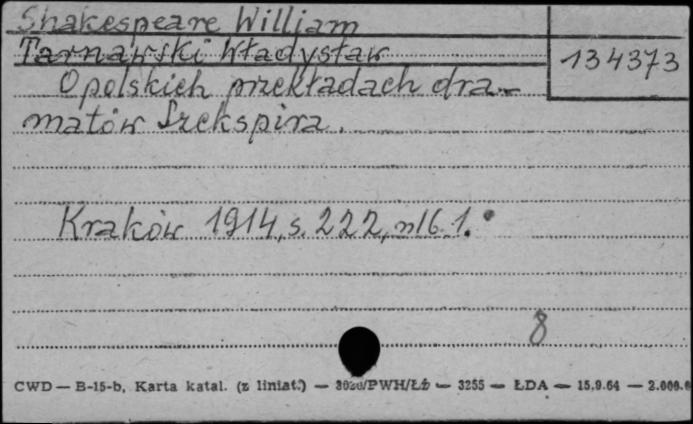 Shakespeare William
Tarnawski Władysław
134373
O polskich przekładach dra-
matów Szekspira.
Kraków 1914, s. 222, nlb. 1.
8
CWD — B-15-b, Karta katal. (z liniat.) — /PWH/Łb — 3255 — ŁDA — 15.9.64 —